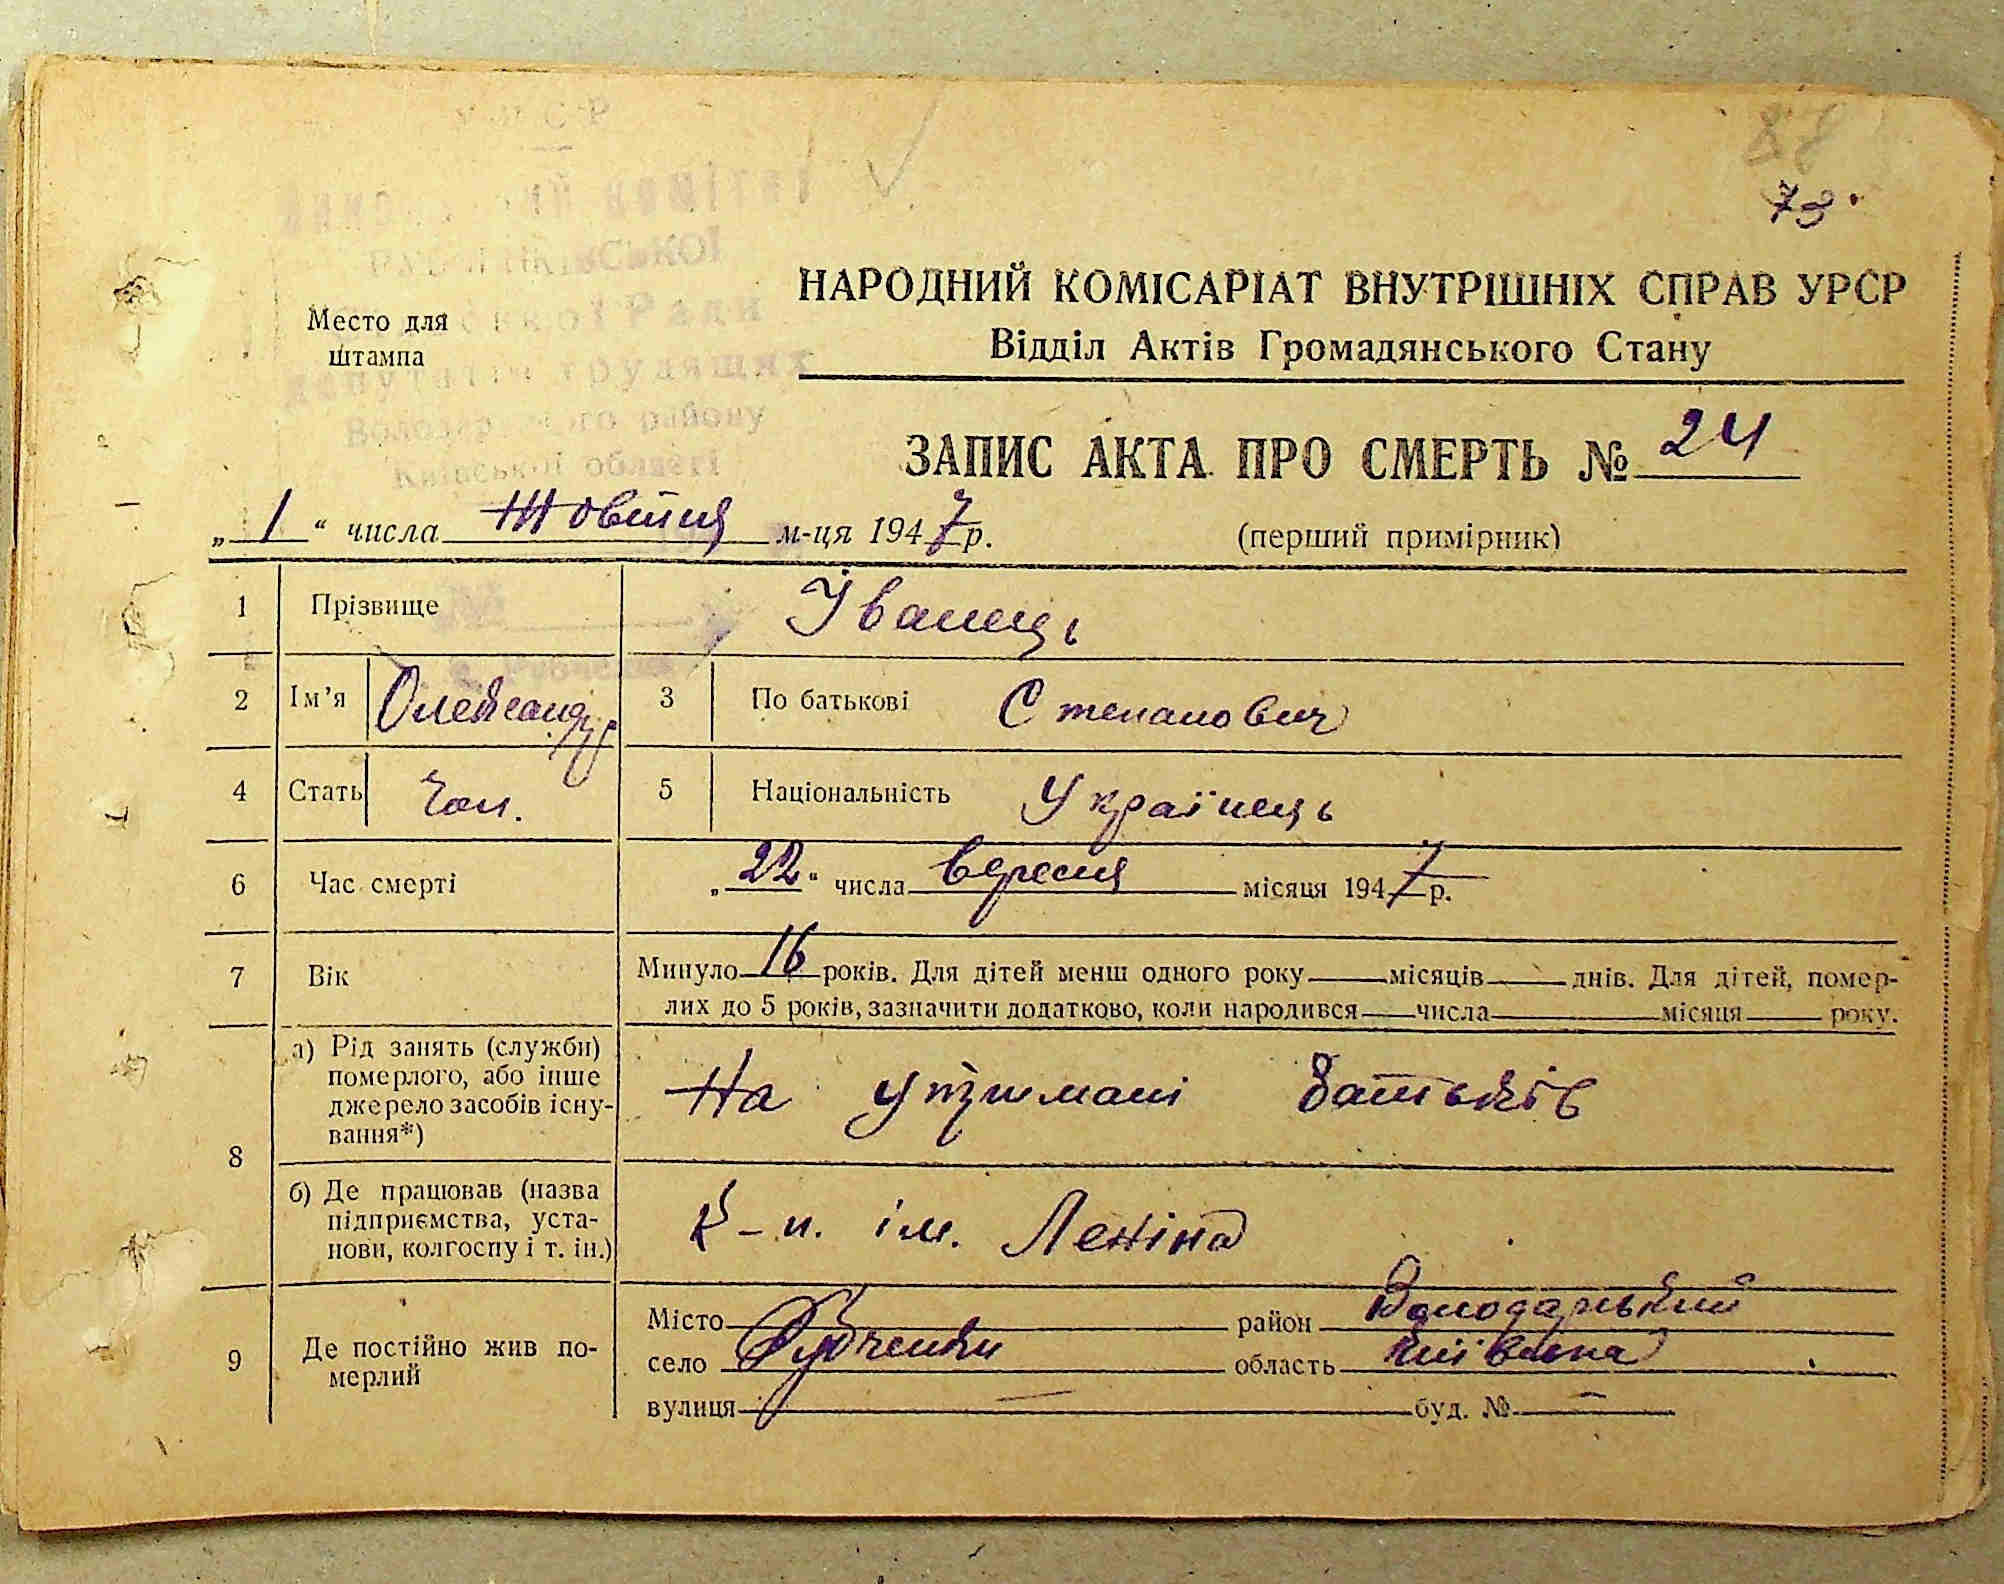 У Р С Р
88
73.
Місто для
штампа
НАРОДНИЙ КОМІСАРІАТ ВНУТРІШНІХ СПРАВ УРСР
Відділ Актів Громадянського Стану
Ради
депутатів трудящих
Володарського району
Київської області
ЗАПИС АКТА ПРО СМЕРТЬ № 24
„1“ числа Жовтня м-ця 1947 р. (перший примірник)
1 Прізвище Іванець
2 Ім'я Олександр 3 По батькові Степанович
4 Стать Чол. 5 Національність Українець
6 Час смерті „22“ числа вересня місяця 1947 р.
7 Вік Минуло 16 років. Для дітей менш одного року місяців днів. Для дітей, помер-
лих до 5 років, зазначити додатково, коли народився числа місяця року.
8 а) Рід занять (служби)
померлого, або інше
джерело засобів існу-
вання*)
На утримані батьків
б) Де працював (назва
підприємства, уста-
нови, колгоспу і т. ін.)
К-п. ім. Леніна
9 Де постійно жив по-
мерлий
Місто район Володарський
село Рубченки область Київська
вулиця — буд. № —